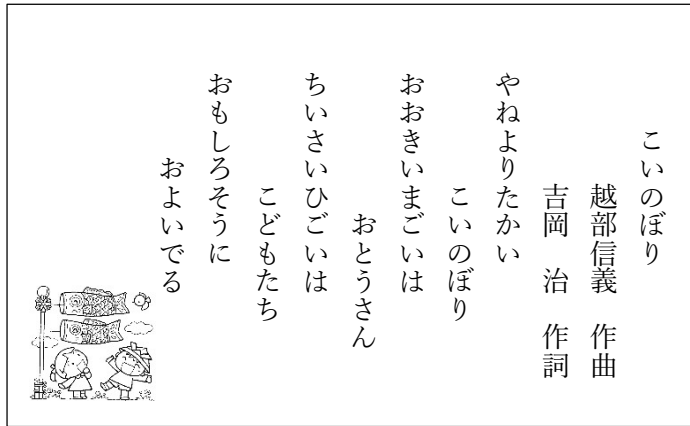 こいのぼり
越部信義　作曲
吉岡　治　作詞
やねよりたかい
こいのぼり
おおきいまごいは
おとうさん
ちいさいひごいは
こどもたち
おもしろそうに
およいでる